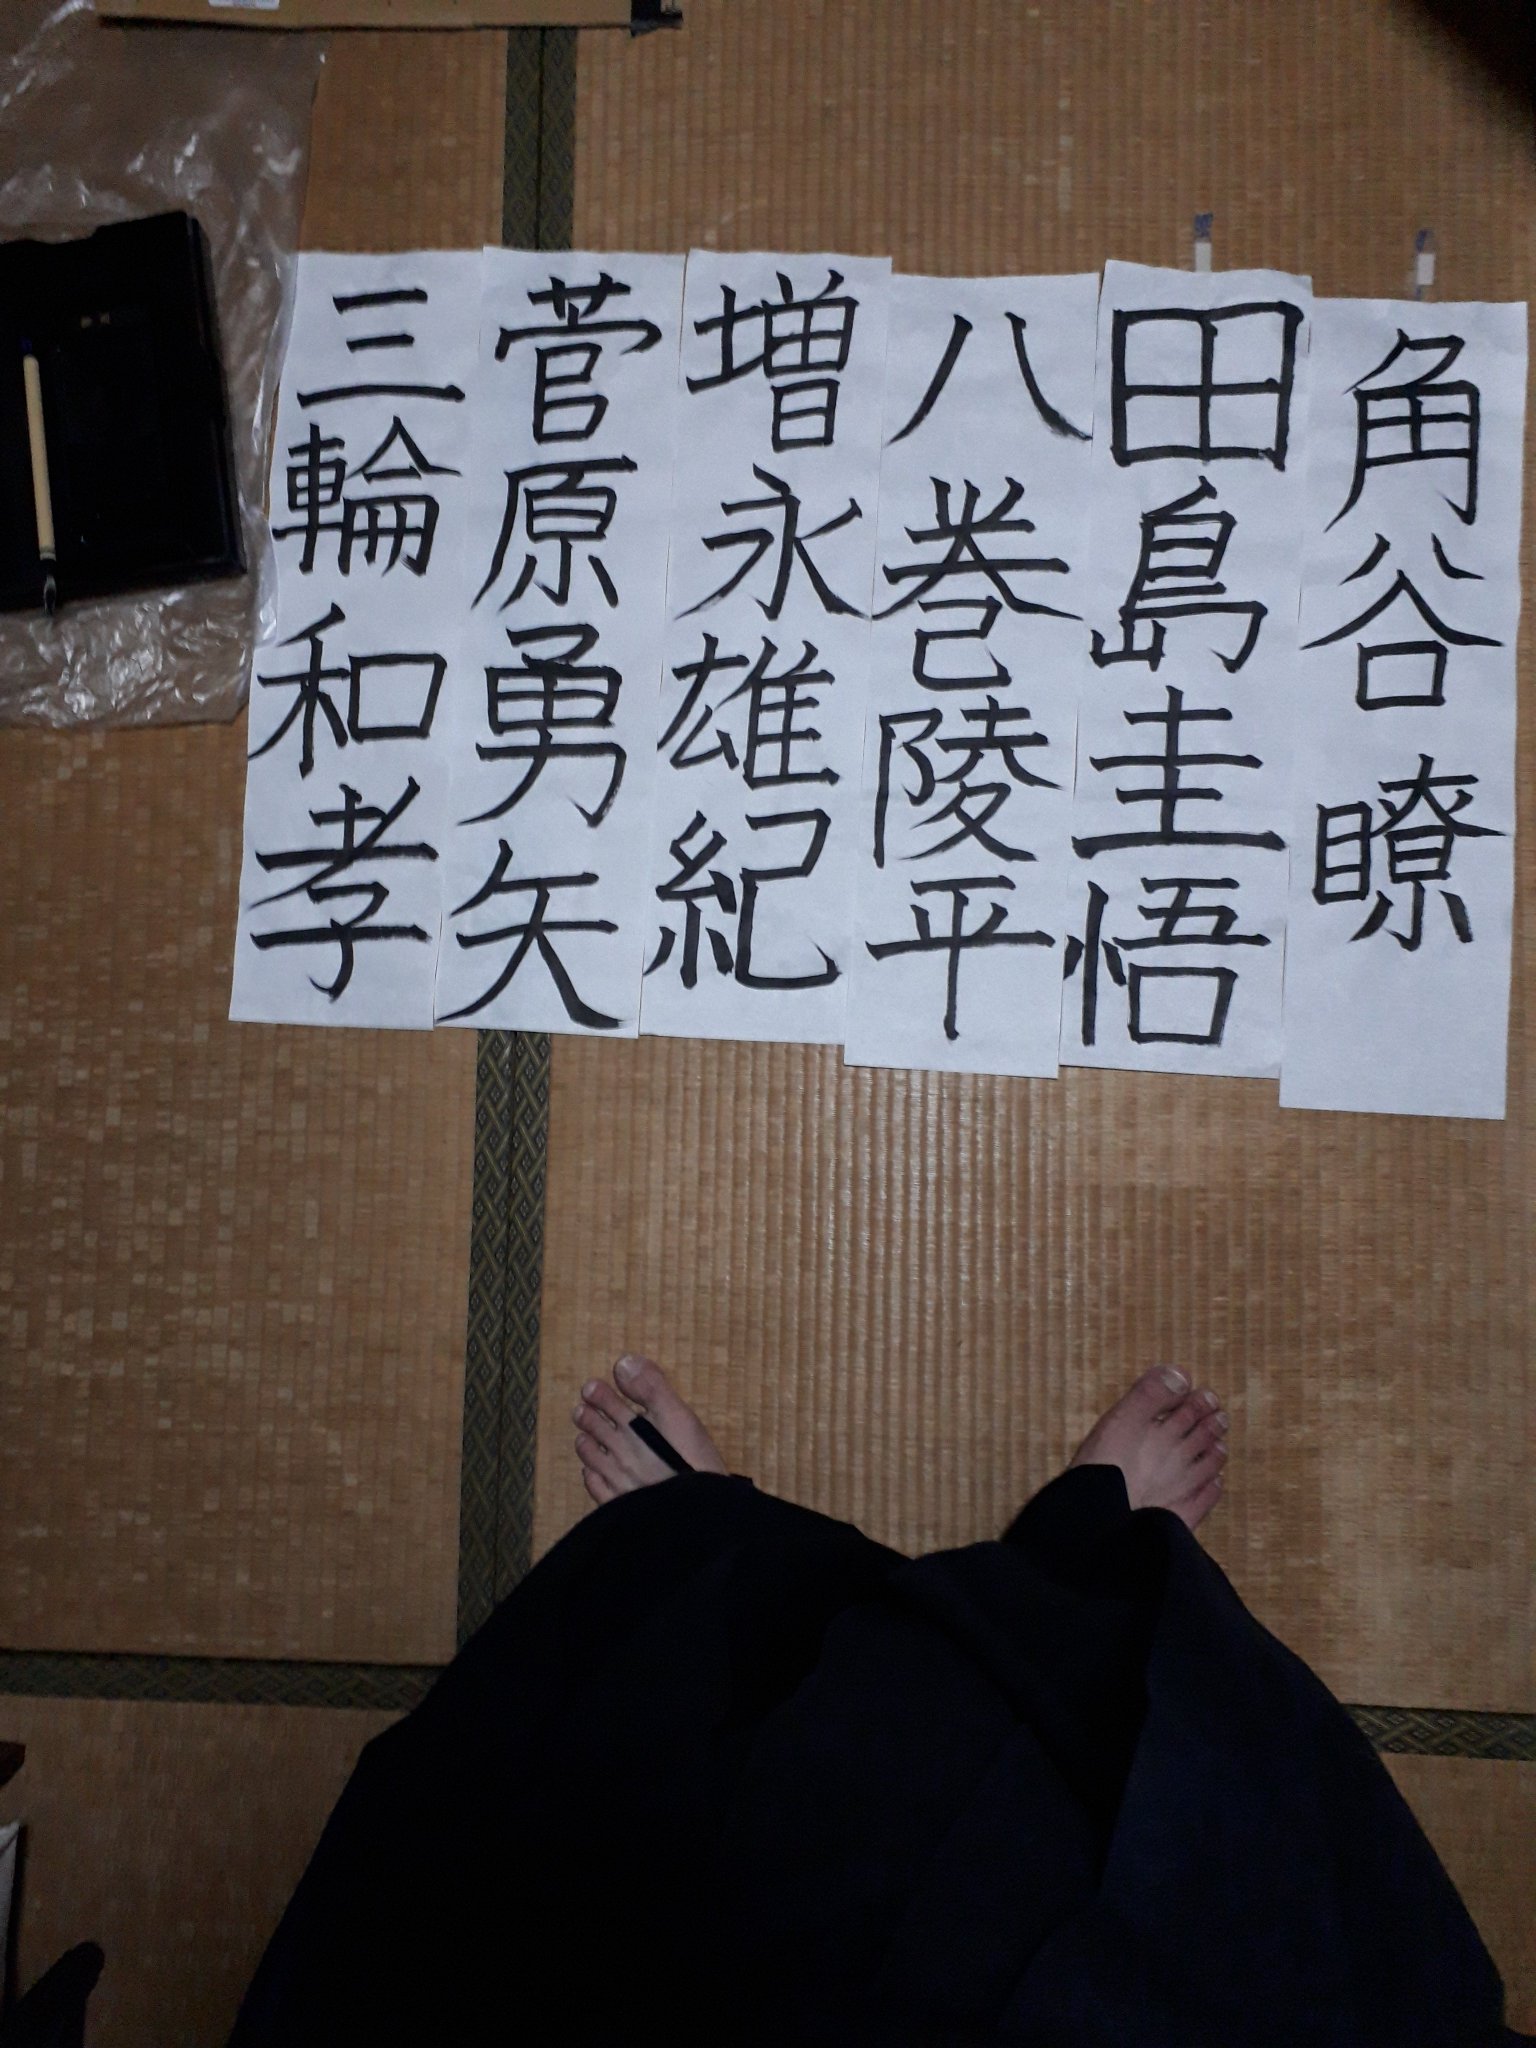 角谷瞭
田島圭悟
八巻陵平
増永雄紀
菅原勇矢
三輪和孝